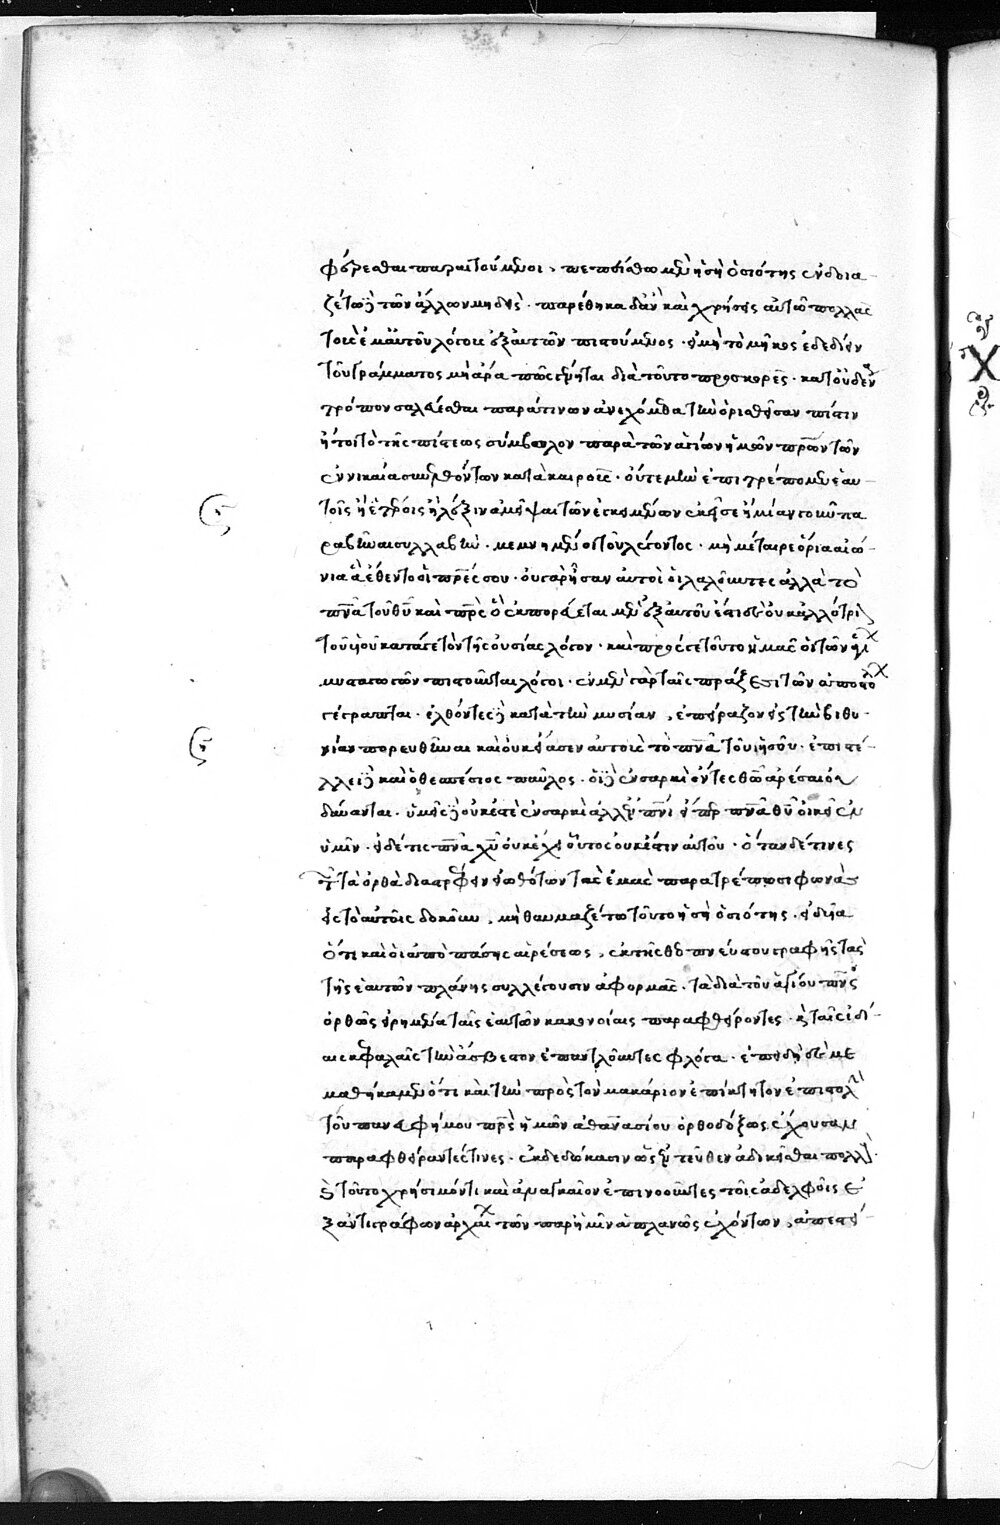 φέρεσθαι παραιτούμενοι, πεπείσθω μὲν ἡ σὴ ὁσιότης ἐνδοια
ζέτω δὲ τῶν ἄλλων μηδεὶς. παρέθηκα δ' ἂν καὶ χρήσεις αὐτῶν πολλὰς
τοῖς ἐμαυτοῦ λόγοις ἐξ αὐτῶν πιστούμενος. εἰ μὴ τὸ μῆκος ἐδεδίειν
τοῦ γράμματος μὴ ἄρα πως γένηται διὰ τοῦτο προσκορές. κατ' οὐδένα
τρόπον σαλεύεσθαι παρά τινων ἀνεχόμεθα τὴν ὁρισθεῖσαν πίστιν
ἤτοι τὸ τῆς πίστεως σύμβολον παρὰ τῶν ἁγίων ἡμῶν πρων τῶν
ἐν νικαία συνελθόντων κατὰ καιροὺς. οὔτε μὴν ἐπιτρέπομεν ἑαυ
τοῖς ἢ ἑτέροις ἢ λέξιν ἀμεῖψαι τῶν ἐγκειμένων ἐκεῖσε ἢ μίαν γοῦν πα
ραβῆναι συλλαβὴν. μεμνημένοι τοῦ λέγοντος. μὴ μέταιρε ὅρια αἰώ
νια ἃ ἔθεντο οἱ πρες σου. οὐ γὰρ ἦσαν αὐτοὶ οἱ λαλοῦντες ἀλλὰ τὸ
πνα τοῦ θυ καὶ πρς ὃ ἐκπορεύεται μὲν ἐξ αὐτοῦ ἔστι δὲ οὐκ ἀλλότριον
τοῦ υἱοῦ κατά γε τὸν τῆς οὐσίας λόγον. καὶ πρός γε τοῦτο ἡμᾶς οἱ τῶν ἁγί
μυσταγωγῶν πιστοῦνται λόγοι. ἐν μὲν γὰρ ταῖς πράξεσι τῶν ἀποστό
γέγραπται. ἐλθόντες δὲ κατὰ τὴν μυσίαν, ἐπείραζον εἰς τὴν βιθυ
νίαν πορευθῆναι καὶ οὐκ εἴασεν αὐτοὺς τὸ πνα τοῦ ἰησοῦ. ἐπιστέ
λλει δὲ καὶ ὁ θεσπέσιος παῦλος. οἱ δὲ ἐν σαρκὶ ὄντες θω ἀρέσαι οὐ
δύνανται. ὑμεῖς δὲ οὐκ ἐστὲ ἐν σαρκὶ ἀλλ' ἐν πνι εἴπερ πνα θυ οἰκεῖ ἐν
ὑμῖν. εἰ δέ τις πνα χυ οὐκ ἔχει οὗτος οὐκ ἔστιν αὐτοῦ. ὅταν δέ τινες
τῶν τὰ ὀρθὰ διαστρέφειν εἰωθότων τὰς ἐμὰς παρατρέπωσι φωνὰς
εἰς τὸ αὐτοῖς δοκοῦν, μὴ θαυμαζέτω τοῦτο ἡ σὴ ὁσιότης. εἰδυῖα
ὅτι καὶ οἱ ἀπὸ πάσης αἱρέσεως, ἐκ τῆς θεοπνεύστου γραφῆς τὰς
τῆς ἑαυτῶν πλάνης συλλέγουσιν ἀφορμὰς. τὰ διὰ τοῦ ἁγίου πνς
ὀρθῶς εἰρημένα ταῖς ἑαυτῶν κακονοίαις παραφθείροντες. καὶ ταῖς ἰδί
αις κεφαλαῖς τὴν ἄσβεστον ἐπαντλοῦντες φλόγα. ἐπειδὴ δὲ με
μαθήκαμεν ὅτι καὶ τὴν πρὸς τὸν μακάριον ἐπίκτητον ἐπιστολὴν
τοῦ πανευφήμου πρς ἡμῶν ἀθανασίου ὀρθοδόξως ἔχουσαν
παραφθείραντές τινες. ἐκδεδώκασιν ὡς ἐντεῦθεν ἀδικεῖσθαι πολλούς.
διὰ τοῦτο χρήσιμόν τι καὶ ἀναγκαῖον ἐπινοοῦντες τοῖς ἀδελφοῖς ἐ
ξ ἀντιγράφων ἀρχαίων τῶν παρ' ἡμῖν ἀπλανῶς ἐχόντων, ἀπεστεί